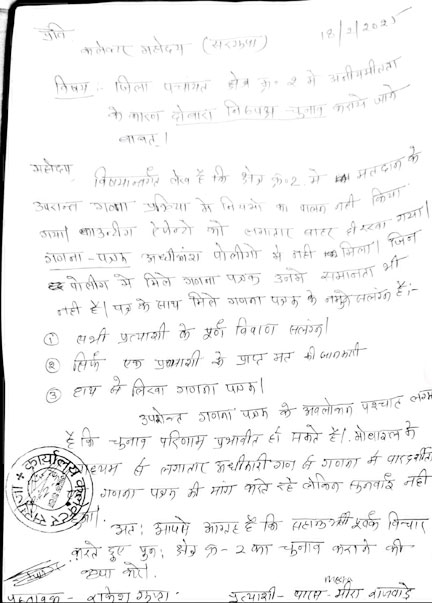 प्रति 18/2/2025
कलेक्टर महोदय (सरगुजा)
विषय :- जिला पंचायत क्षेत्र क्र-2 में अनीयमीतता
के कारण दोबारा निष्पक्ष चुनाव कराये जाने
बाबत।
महोदय
विषयान्तर्गत लेख है कि क्षेत्र क्र-2 में मतदान के
उपरान्त गणना प्रक्रिया में नियमो का पालन नही किया
गया। काउन्टींग ऐजेन्टो को लगातार बाहर ही रखा गया।
गणना-पत्रक अधीकांश पोलींगो से नही मिला। जिन
पोलींग से मिले गणना पत्रक उनमें समानता भी
नही है। पत्र के साथ मिले गणना पत्रक के नमुने सलंग्न है:-
① सभी प्रत्याशी के पूर्ण विवरण सलंग्न।
② सिर्फ एक प्रत्याशी के प्राप्त मत की जानकारी
③ हाथ से लिखा गणना पत्रक।
उपरोक्त गणना पत्रक के अवलोकन पश्चात
है कि चुनाव परिणाम प्रभावीत हो सकते है। मोबाइल के
माध्यम से लगातार अधीकारी गण से गणना में पारदर्शीता
गणना पत्रक की मांग करते रहे लेकिन सुनवाई नही
अतः आपसे आग्रह है कि पूर्वक विचार
करते हुए पुनः क्षेत्र क्र-2 का चुनाव कराने की
कृपा करें।
कार्यालय कलेक्टर सरगुजा
प्रस्तावक - राकेश गुप्ता प्रत्याशी - पारस - मीरा राजवाडे